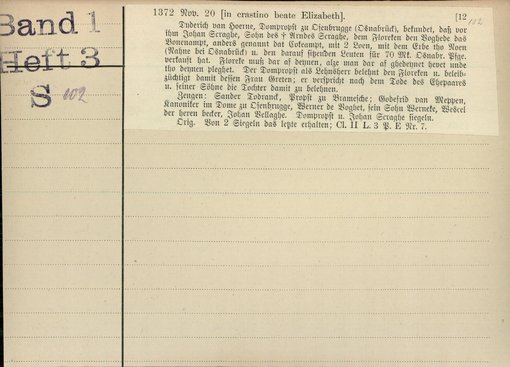 Band 1
Heft 3
S 102
1372 Nov. 20 [in crastino beate Elizabeth]. [12 112
Dyderich van Hoerne, Dompropst zu Osenbrugge (Osnabrück), bekundet, daß vor
ihm Johan Scraghe, Sohn des † Arndes Scraghe, dem Floreken den Voghede das
Bonenampt, anders genannt dat Cokeampt, mit 2 Loen, mit dem Erbe tho Noen
(Nahne bei Osnabrück) u. den darauf sitzenden Leuten für 70 Mk. Osnabr. Pfge.
verkauft hat. Floreke muß dar af deynen, alze man dar af ghedeynet hevet unde
tho deynen pleghet. Der Dompropst als Lehnsherr belehnt den Floreken u. beleib-
züchtigt damit dessen Frau Greten; er verspricht nach dem Tode des Ehepaares
u. seiner Söhne die Tochter damit zu belehnen.
Zeugen: Sander Todranck, Propst zu Bramesche; Godefrid van Meppen,
Kanoniker im Dome zu Osenbrugge, Werner de Voghet, sein Sohn Werneke, Wescel
der heren becker, Johan Bellaghe. Dompropst u. Johan Scraghe siegeln.
Orig. Von 2 Siegeln das letzte erhalten; Cl. II L. 3 P. E Nr. 7.